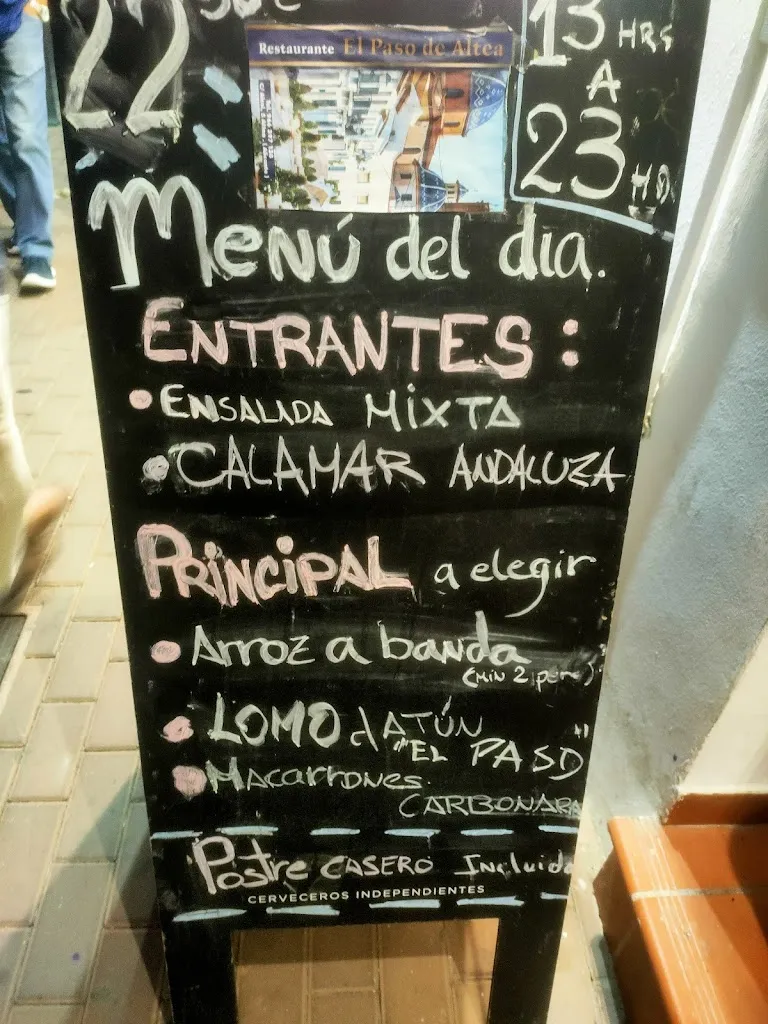 22
Restaurante El Paso de Altea
13 HRS
A
23 HD
Menú del dia.
ENTRANTES:
• ENSALADA MIXTA
• CALAMAR ANDALUZA
PRINCIPAL a elegir
• Arroz a banda
(MIN 2 per)
• LOMO d ATÚN
"EL PASO"
• Macarrones
CARBONARA
Postre CASERO Incluido
CERVECEROS INDEPENDIENTES